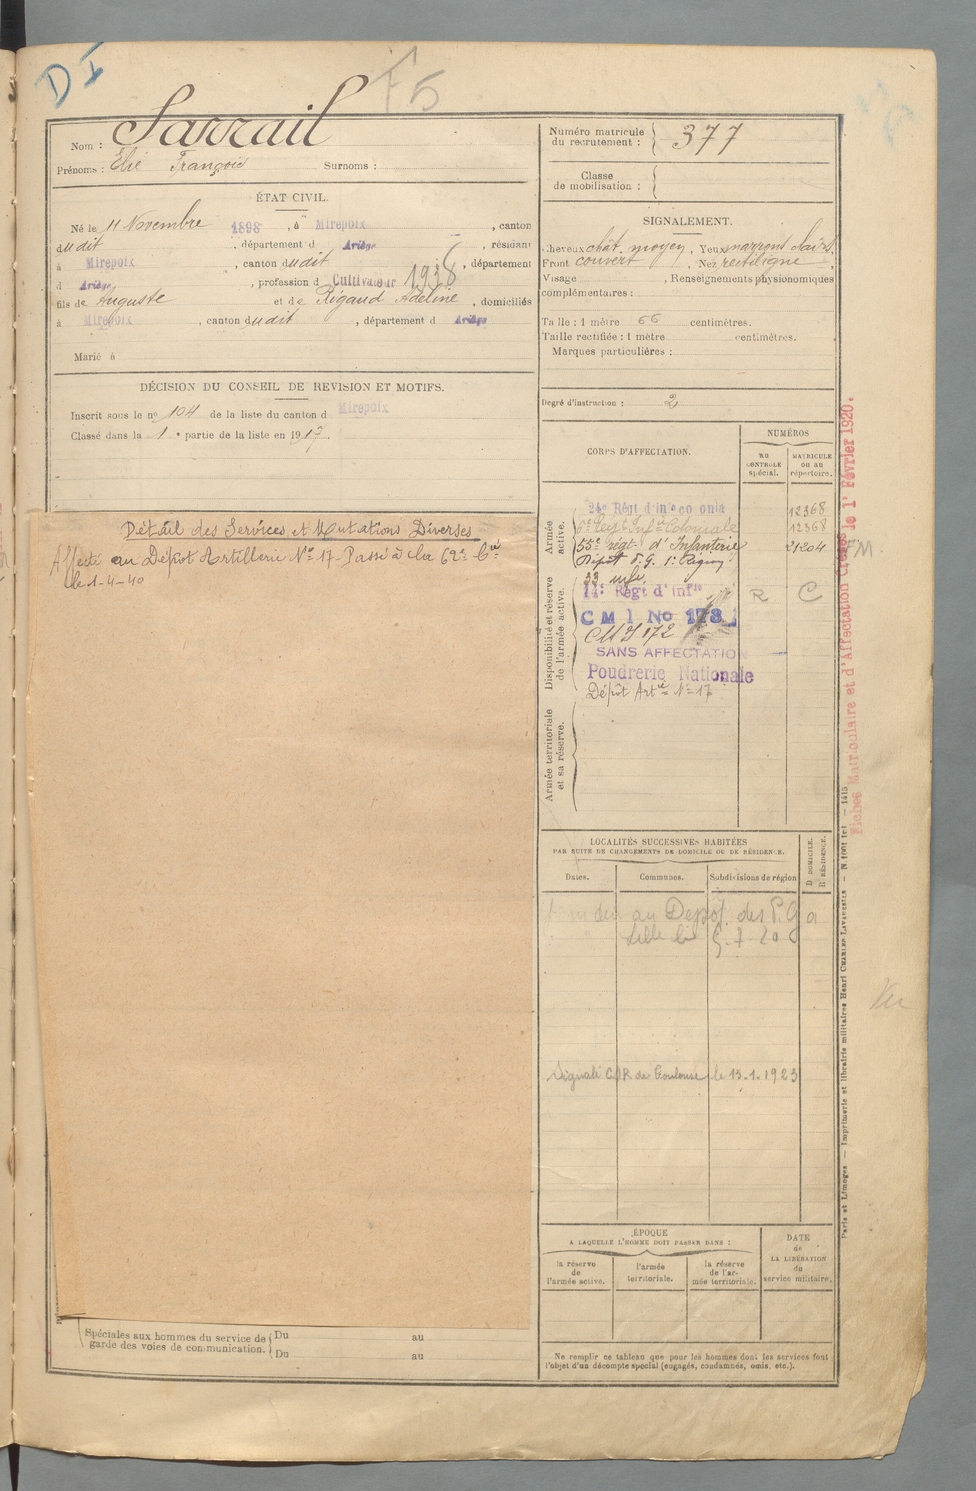 D I
F5
Nom : Sarrail
Prénoms : Elie François Surnoms :
ÉTAT CIVIL.
Né le 11 Novembre 1898, à Mirepoix, canton
dudit, département d Ariège, résidant
à Mirepoix, canton dudit, département
d Ariège, profession d Cultivateur 1938
fils de Auguste et de Rigaud Adeline, domiciliés
à Mirepoix, canton dudit, département d Ariège
Marié à
DÉCISION DU CONSEIL DE REVISION ET MOTIFS.
Inscrit sous le no 104 de la liste du canton d Mirepoix
Classé dans la 1e partie de la liste en 1917.
Détail des Services et Mutations Diverses
Affecté au Dépôt Artillerie No 17. Passé à la 62e Cie
le 1-4-40
Spéciales aux hommes du service de garde des voies de communication.
Du au
Du au
Numéro matricule du recrutement : 377
Classe de mobilisation :
SIGNALEMENT.
Cheveux chât. moyen, Yeux marrons
Front couvert, Nez rectiligne,
Visage , Renseignements physionomiques
complémentaires :
Taille : 1 mètre 66 centimètres.
Taille rectifiée : 1 mètre centimètres.
Marques particulières :
Degré d'instruction : 2
CORPS D'AFFECTATION.
NUMÉROS
AU CONTROLE spécial.
MATRICULE ou au répertoire.
Armée active.
24e Régt d'infie coloniale 12368
Infie Coloniale 12368
55e régt d'Infanterie 21204
Dépôt P.G. 1e Région
Disponibilité et réserve de l'armée active.
33 infie
14e Régt d'Infie R C
C M I No 173
CMI 172
SANS AFFECTATION
Poudrerie Nationale
Dépôt Artie No 17
Armée territoriale et sa réserve.
LOCALITÉS SUCCESSIVES HABITÉES
PAR SUITE DE CHANGEMENTS DE DOMICILE OU DE RÉSIDENCE.
D DOMICILE.
R RÉSIDENCE.
Dates.
Communes.
Subdivisions de région
au Depot des P.G a
Lille le 5-7-20
Signalé C/R de Toulouse le 13.1.1923
ÉPOQUE
A LAQUELLE L'HOMME DOIT PASSER DANS :
DATE de LA LIBÉRATION du service militaire.
la réserve de l'armée active.
l'armée territoriale.
la réserve de l'armée territoriale.
Ne remplir ce tableau que pour les hommes dont les services font
l'objet d'un décompte spécial (engagés, condamnés, omis, etc.).
Fiches Matriculaire et d'Affectation créées le 1er Février 1920.
Paris et Limoges — Imprimerie et librairie militaires Henri CHARLES-LAVAUZELLE
Vu